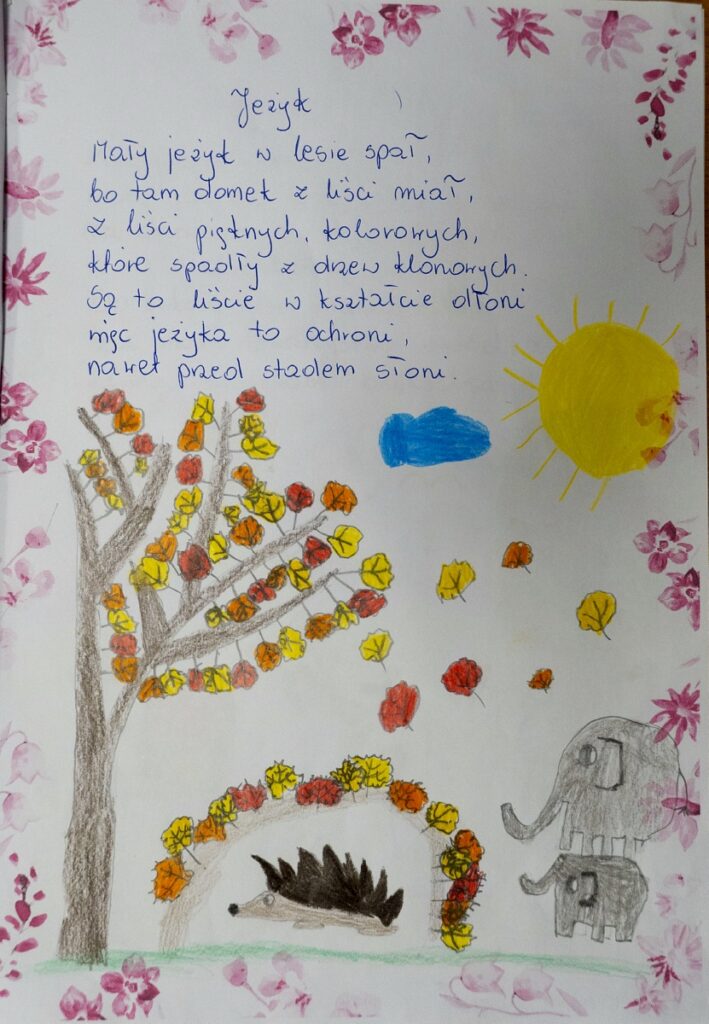 Jeżyk
Mały jeżyk w lesie spał,
bo tam domek z liści miał,
z liści pięknych, kolorowych,
które spadły z drzew klonowych.
Są to liście w kształcie dłoni
więc jeżyka to ochroni,
nawet przed stadem słoni.